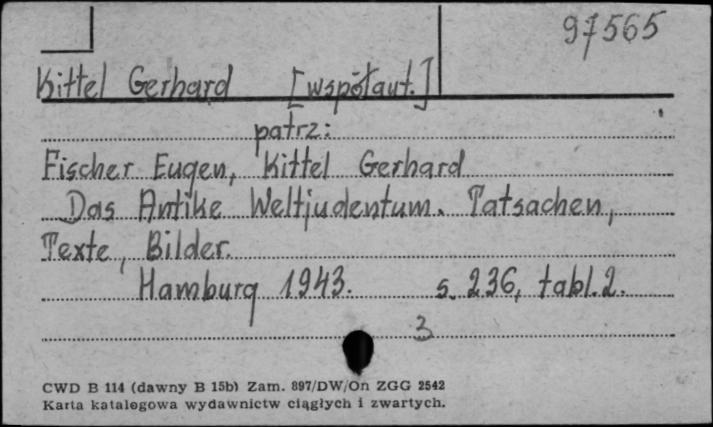 97565
Kittel Gerhard [współaut.]
patrz:
Fischer Eugen, Kittel Gerhard
Das Antike Weltjudentum. Tatsachen,
Texte, Bilder.
Hamburg 1943. s. 236, tabl. 2.
3
CWD B 114 (dawny B 15b) Zam. 897/DW/On ZGG 2542
Karta katalogowa wydawnictw ciągłych i zwartych.